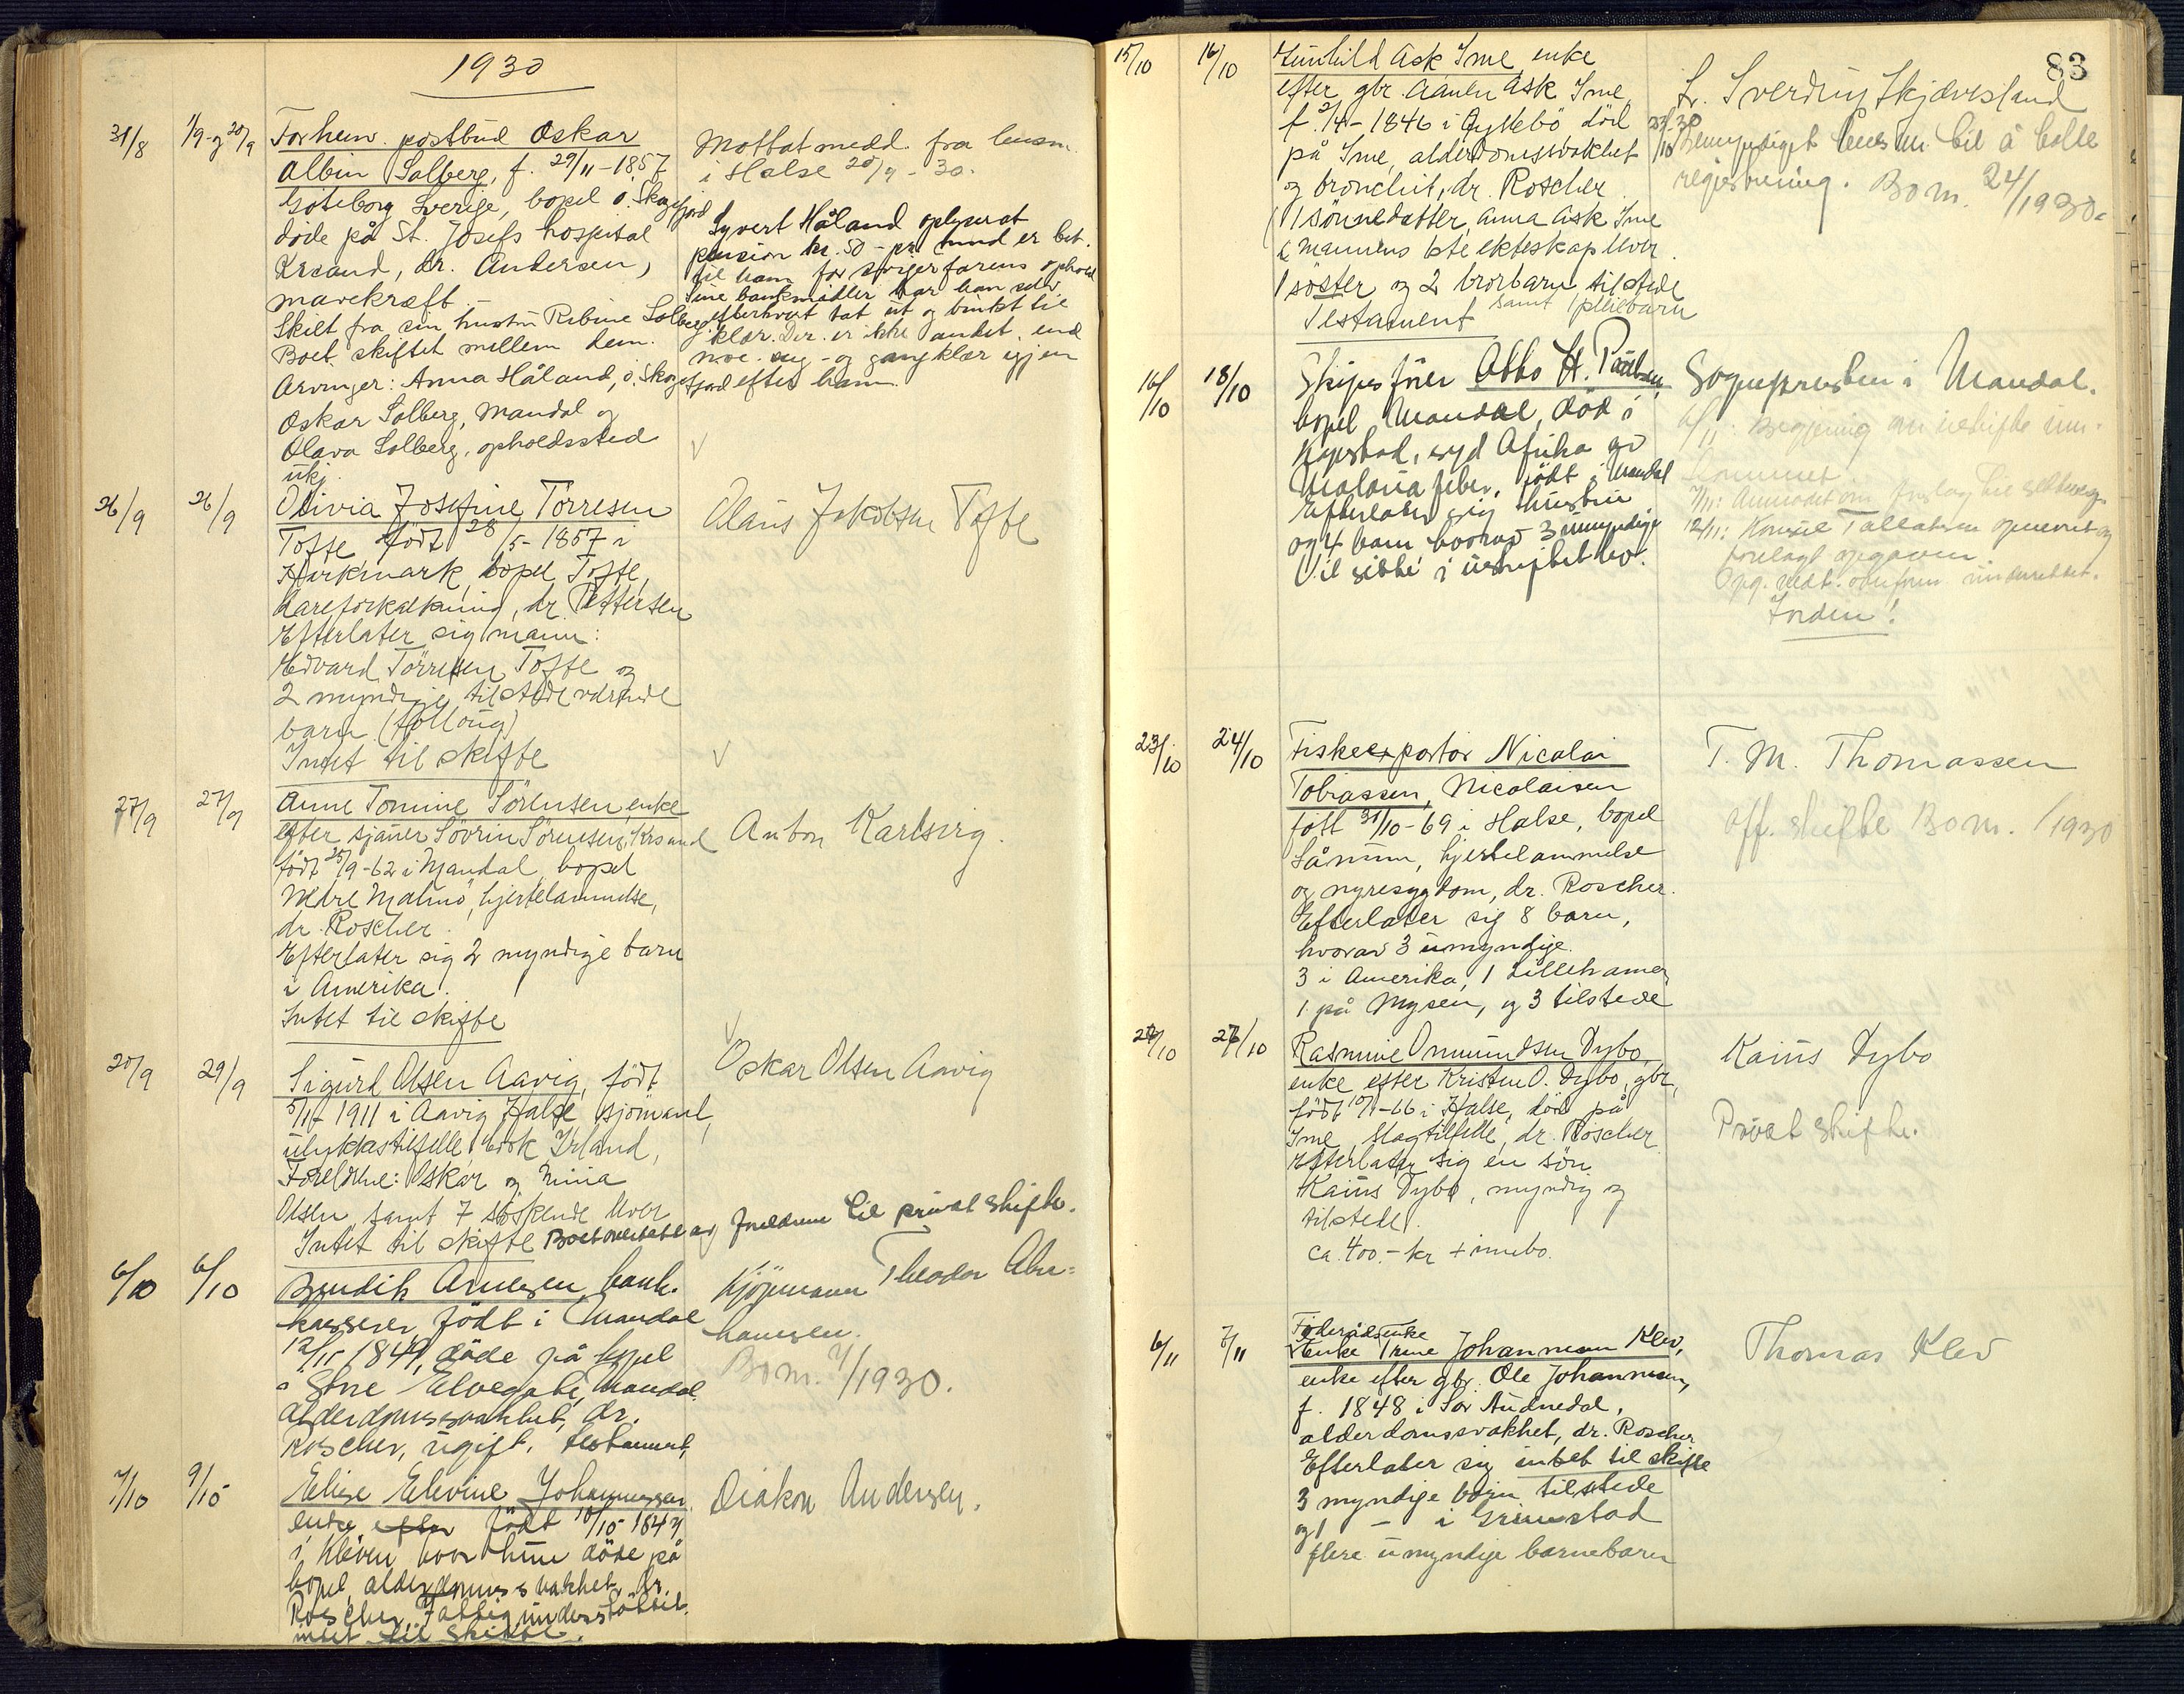 1930
31/8 1/9 - og 20/9 Forhenv. postbud Oskar
Albin Solberg, f. 29/11-1857
Göteborg Sverige, bopel ö. Skogsfjord
döde på St. Josefs hospital
Krsand, dr. Andersen,
mavekræft.
Skilt fra sin hustru Rebine Solberg.
Boet skiftet mellem dem.
Arvinger: Anna Håland, ö. Skogsfjord
Oskar Solberg, Mandal og
Olava Solberg, opholdssted
ukj.
Mottat medd. fra lensm.
i Halse 20/9 - 30.
Syvert Håland oplyser at
pension kr. 50 - pr. mnd er bet.
til ham for svigerfarens ophold
Sine bankmidler har han selv
efterhvert tat ut og brukt til
klær. Der er ikke andet end
noe seng- og gangklær igjen
efter ham.
26/9 26/9 Olivia Josefine Törresen
Tofte født 28/5-1857 i
Harkmark, bopel Tofte,
aareforkalkning, dr. Pettersen
Efterlater sig mann:
Edvard Törresen Tofte og
2 myndige tilstedeværende
barn
Intet til skifte
Olaus Jakobsen Tofte
27/9 27/9 Anne Tomine Sörensen, enke
efter sjauer Sövrin Sörensen, Krsand
født 25/9-62 i Mandal, bopel
Nedre Malmö, hjertelammelse,
dr. Roscher.
Efterlater sig 2 myndige barn
i Amerika.
Intet til skifte
Anton Karlsen
20/9 29/9 Sigurd Olsen Aavig, født
1911 i Aavig Halse, sjömand,
ulykkestilfelle, Cork Irland,
Foreldrene: Oskar og Nina
Olsen samt 7 söskende
Intet til skifte Boet overlatt av foreldrene til privat skifte.
Oskar Olsen Aavig
6/10 6/10 Bendik Arnesen, bank-
kasserer, født i Mandal
1849, döde på bopel
i Store Elvegate, Mandal
alderdomssvakhet, dr.
Roscher, ugift, testament,
Kjöpmann Theodor Abra-
hamsen.
Bom. /1930.
7/10 9/10 Elise Elevine Johannessen
enke efter født 10/10-1847
i Kleven, hvor hun döde på
bopel, alderdomssvakhet, dr.
Roscher, Fattigunderstöttet.
intet til skifte.
Diakon Andersen.
83
15/10 16/10 Gunhild Ask Ime, enke
efter gbr. Aanen Ask Ime
f. 2/4-1846 i Øyslebö död
på Ime, alderdomssvakhet
og bronchit, dr. Roscher
1 sönnedatter, Anna Ask Ime
i mannens 1ste ekteskap
1 söster og 2 brorbarn tilstede
samt 1 pleiebarn
Testament
L. Sverdrup Skjævesland
Bemyndiget lensm. til å holde
registrering. Bom. 24/1930.
16/10 18/10 Skipsförer Abbo H. Paulsen,
bopel Mandal, död i
Kapstad, syd Afrika av
Malaria feber, född i Mandal
Efterlater sig hustru
og 4 barn hvorav 3 umyndige
Vil sitte i uskiftet bo.
Sognepresten i Mandal.
6/11: Begjering om uskifte inn-
kommet
12/11: Konsul Tallaksen opnevnt og
forelagt opgaven
23/10 24/10 Fiskeexportör Nicolai
Tobiassen, Nicolaisen
født 31/10-69 i Halse, bopel
Sånum, hjertelammelse
og nyresygdom, dr. Roscher.
Efterlater sig 8 barn,
hvorav 3 umyndige.
3 i Amerika, 1 Lillehamer
1 på Mysen, og 3 tilstede
T. M. Thomassen
Off. skifte Bom. /1930
24/10 26/10 Rasmine Ommundsen Dybo,
enke efter Kristen O. Dybo, gbr,
född 10/1-66 i Halse, död på
Ime, slagtilfelle, dr. Roscher
Efterlater sig en sön
Kainus Dybo, myndig og
tilstede.
ca. 400.- kr + innbo.
Kainus Dybo
Privat skifte.
6/11 7/11 Föderådsenke
Enke Trine Johannesen Klev,
enke efter gbr. Ole Johannesen,
f. 1848 i Sör Audnedal,
alderdomssvakhet, dr. Roscher
Efterlater sig intet til skifte
3 myndige barn tilstede
og 1 - i Grimstad
flere umyndige barnebarn
Thomas Klev